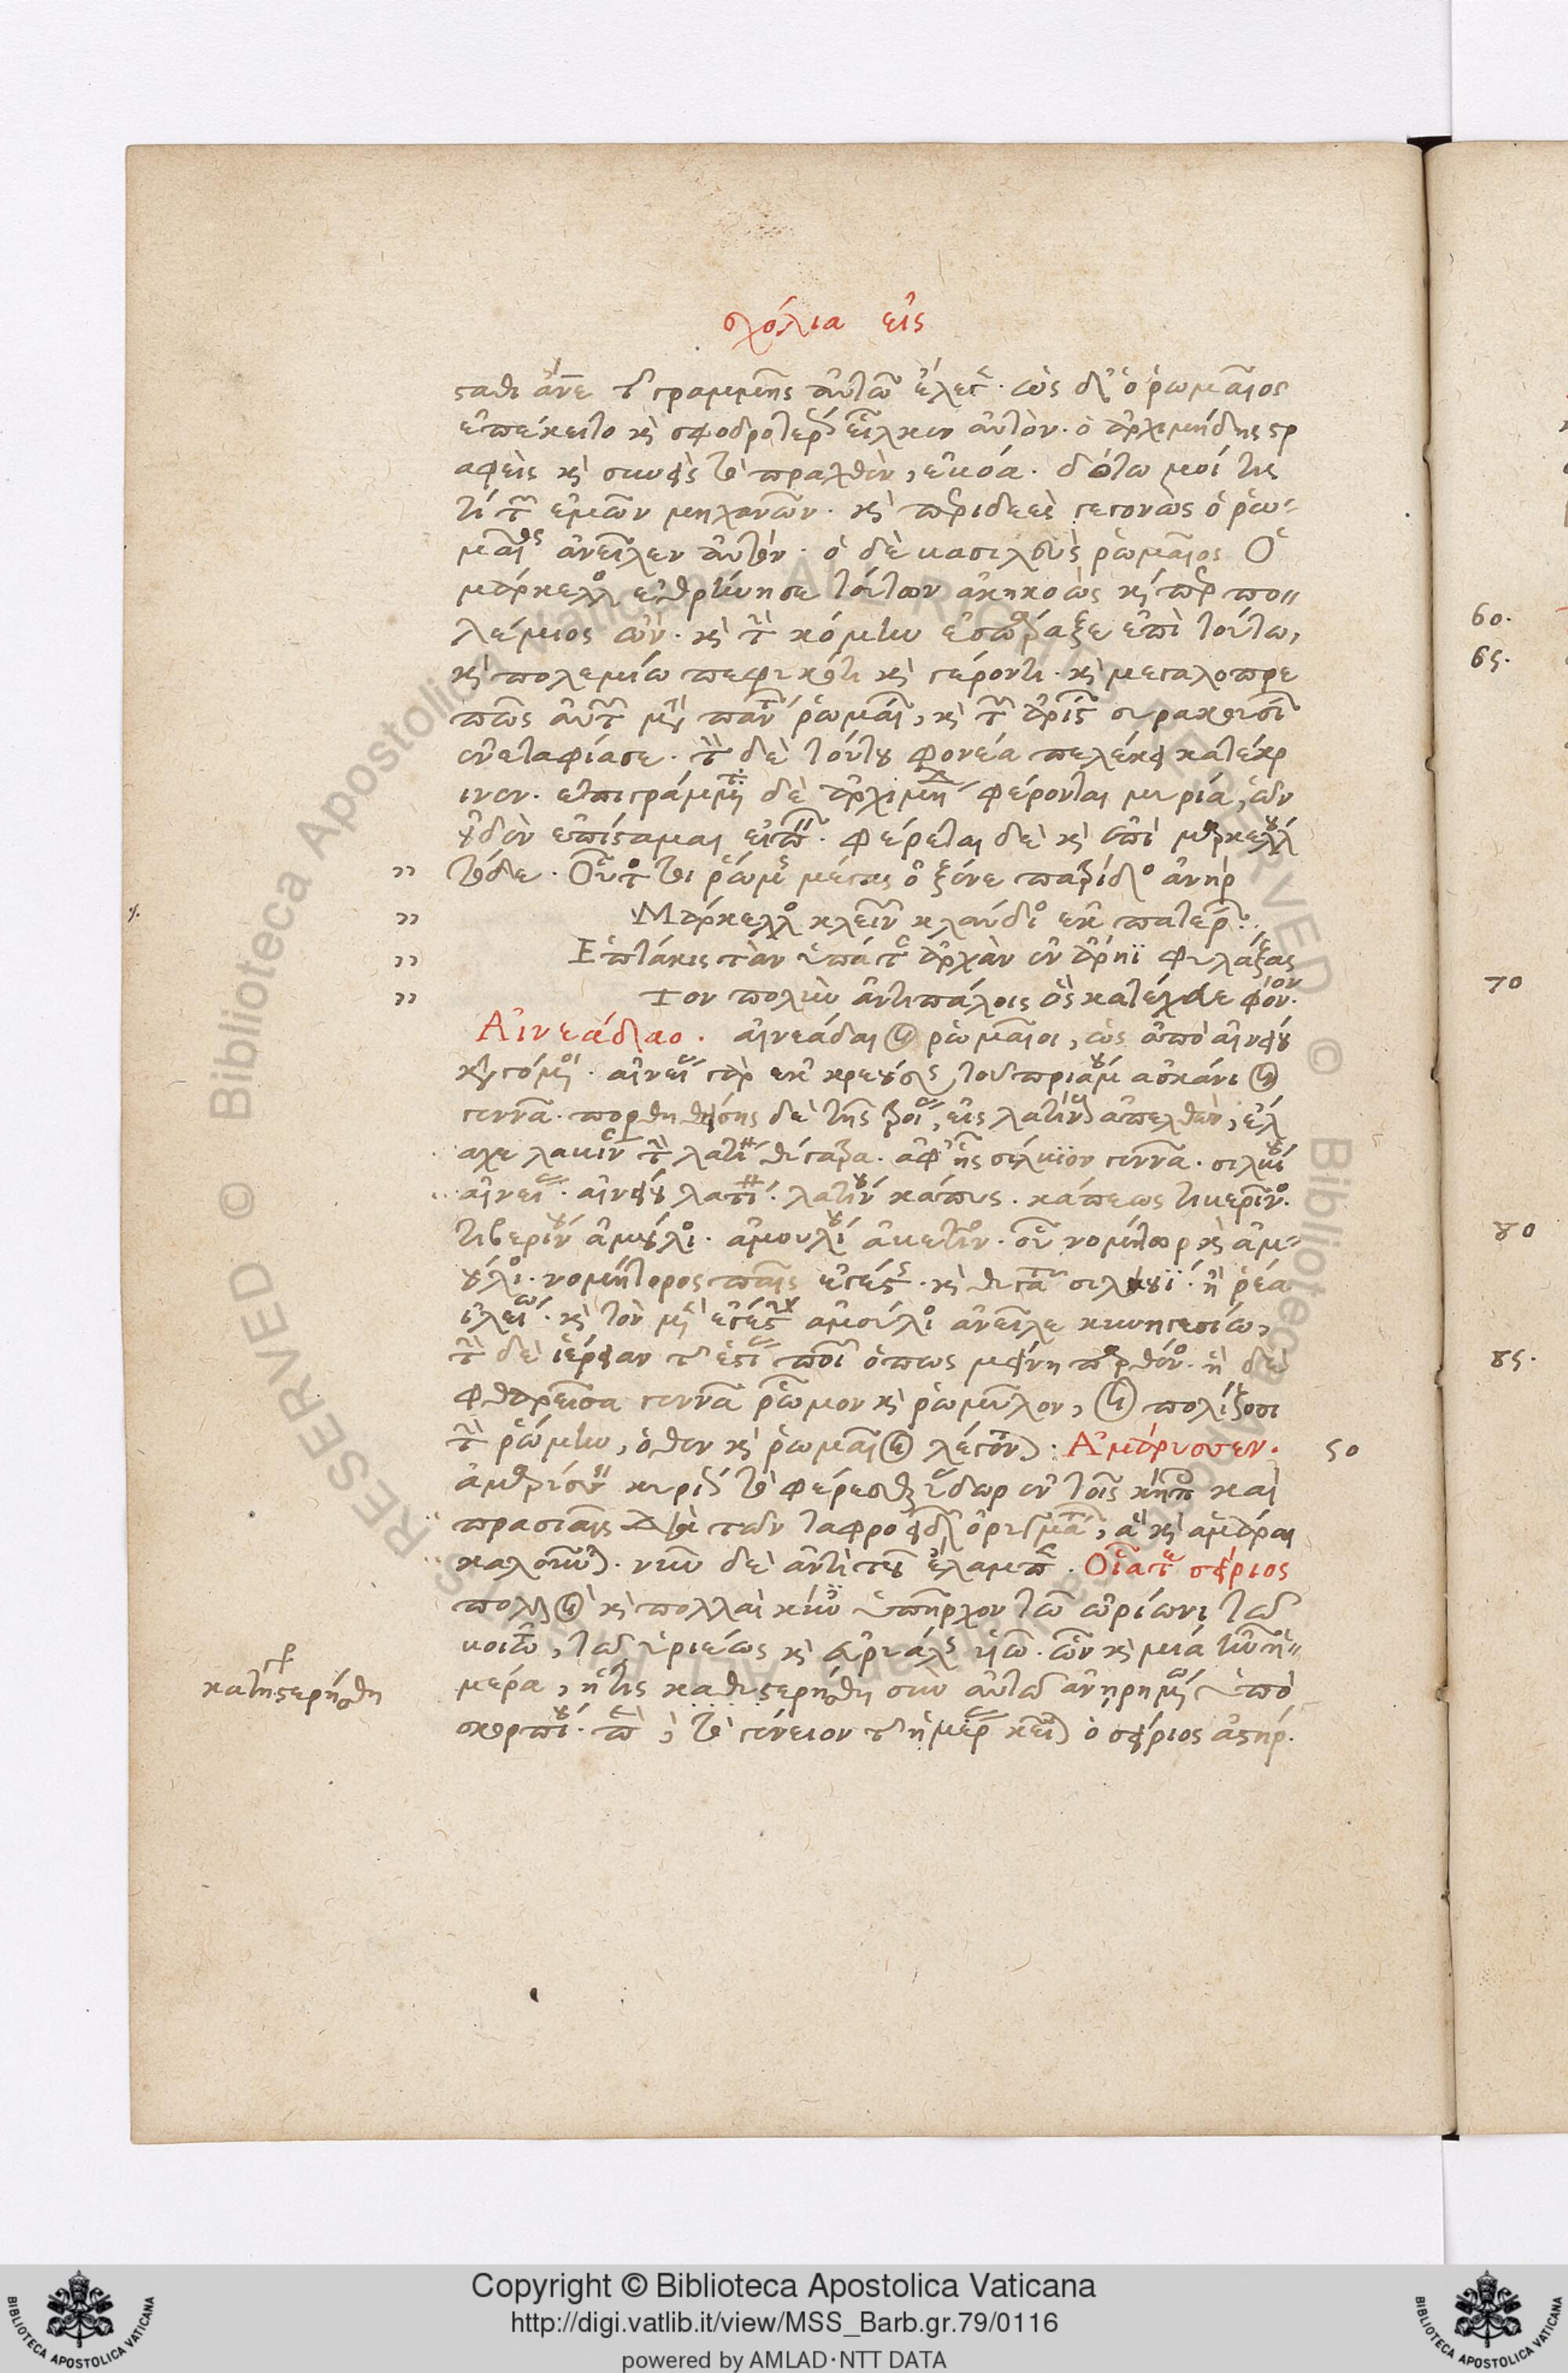 σχόλια εἰς
σταθι ἄνερ τῆς γραμμῆς αὐτῶ ἔλεγεν. ὡς δὲ ὁ ῥωμαῖος
ἐπέκειτο καὶ σφοδρότερον εἷλκεν αὐτὸν. ὁ ἀρχιμήδης στρ
αφεὶς καὶ σκυφεὶς τὸ πραχθὲν, ἐβόα. δότω μοί τις
τί τῶν ἐμῶν μηχανῶν. καὶ περιδεεὴς γεγονὼς ὁ ῥω-
μαῖος ἀνεῖλεν αὐτὸν. ὁ δὲ βασιλεὺς ῥωμαῖος Ὁ
μάρκελλος ἐθρήνησε τοῦτον ἀκηκοὼς καίπερ πο-
λέμιος ὢν. καὶ τὴν κόμην ἐσπάραξε ἐπὶ τούτω,
καὶ πολεμίω πεφυκότι καὶ γέροντι. καὶ μεγαλοπρε
πῶς αὐτὸν μετὰ πάντων ῥωμαίων, καὶ τῶν ἀρίστων συρακουσίων
ἐνεταφίασε. τὸν δὲ τούτου φονέα πελέκει κατέκρ
ινεν. ἐπιγράμματα δὲ ἀρχιμήδους φέρονται μυρία, ὧν
οὐδὲν ἐπίσταμαι εἰπεῖν. φέρεται δὲ καὶ ἐπὶ μαρκέλλου
τόδε. Οὗτός τοι ῥώμης μέγας ὦ ξένε πατρίδος ἀνὴρ
Μάρκελλος κλεινῶν κλαύδιος ἐκ πατέρων.
Ἑπτάκις τὰν ὑπάτων ἀρχὰν ἐν ἄρηϊ φυλάξας
Τον πολὺν ἀντιπάλοις ὃς κατέχευε φόνον.
Αἰνεάδαο. αἰνεάδαι οἱ ῥωμαῖοι, ὡς ἀπὸ αἰνείου
καταγόμενοι. αἰνείας γὰρ ἐκ κρεούσης τοῦ πριάμου ἀσκάνιον
γεννᾶ. πορθηθείσης δὲ τῆς τροίας, εἰς λατίνους ἀπελθὼν, ἔλ
αχε λαβιν τὴν λατίνου θυγατρα. ἀφ' ἧς σίλβιον γεννᾶ. σιλβίου
αἰνείας. αἰνείου λατῖνος. λατίνου κάπυς. κάπεως τιβερῖνος.
τιβερίνου ἀμούλιος. ἀμουλίου ἀβεντῖνος. οὗ νομήτωρ καὶ ἀμ-
ούλιος. νομήτορος παῖς ἐγέστης. καὶ θυγάτηρ σιλουΐα. ἢ ῥέα
ἰλεία. καὶ τὸν μὲν ἐγέστην ἀμούλιος ἀνεῖλε κυνηγεσίω,
τὴν δὲ ἱέρειαν τῆς ἑστίας ποιεῖ ὅπως μείνη παρθένος. ἡ δὲ
φθαρεῖσα γεννᾶ ῥῶμον καὶ ῥωμύλον, οἳ πολίζουσι
τὴν ῥώμην, ὅθεν καὶ ῥωμαῖοι λέγονται. Ἀμάρυσσεν. 50
ἀμαρύσσειν κυρίως τὸ φέρεσθαι ὕδωρ ἐν τοῖς κήποις καὶ
πρασιαῖς διὰ τῶν ταφροειδῶν ὀρυγμάτων, ἃ καὶ ἀμάραι
καλοῦνται. νῦν δὲ ἀντὶ τοῦ ἔλαμπεν. Οἷά τε σείριος
πολλοὶ καὶ πολλαὶ κύνες ὑπῆρχον τῶ ὠρίωνι τῶ
βοιωτῶ, τῶ ὑριέως καὶ εὐρυάλης υἱῶ. ὧν καὶ μία κυνη-
μέρα, ἥτις καθυστερήθη σὺν αὐτῶ ἀνηρημένω ὑπὸ
σκορπίου. παρὰ τὸ γένειον τῆς ἡμέρας κεῖται ὁ σείριος ἀστὴρ.
γρ
κατηστερήθη
60.
65.
70
80
85.
Copyright © Biblioteca Apostolica Vaticana
http://digi.vatlib.it/view/MSS_Barb.gr.79/0116
powered by AMLAD·NTT DATA
BIBLIOTECA APOSTOLICA VATICANA
BIBLIOTECA APOSTOLICA VATICANA